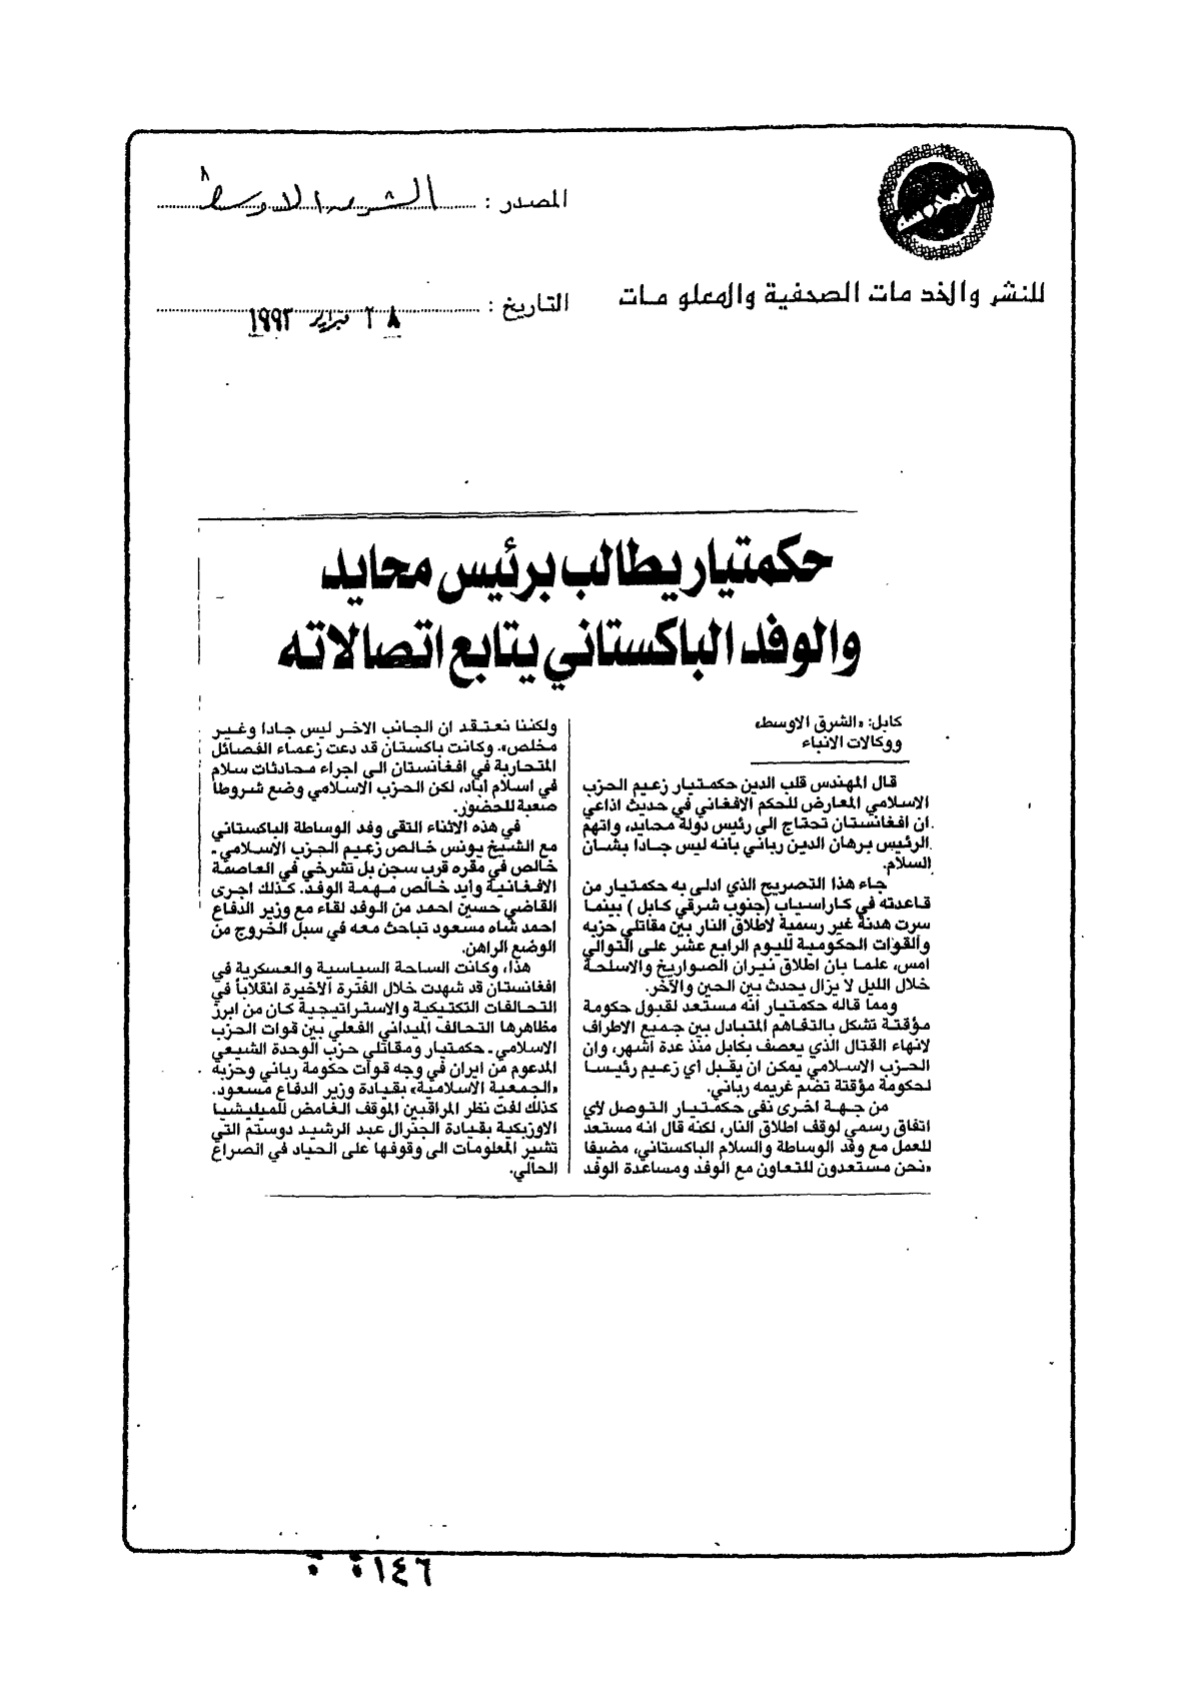 المصدر : الشرق الاوسط
للنشر والخدمات الصحفية والمعلومات
التاريخ : ٢٨ فبراير ١٩٩٣
حكمتيار يطالب برئيس محايد
والوفد الباكستاني يتابع اتصالاته
كابل: «الشرق الاوسط»
ووكالات الانباء
قال المهندس قلب الدين حكمتيار زعيم الحزب
الاسلامي المعارض للحكم الافغاني في حديث اذاعي
ان افغانستان تحتاج الى رئيس دولة محايد، واتهم
الرئيس برهان الدين رباني بانه ليس جادا بشأن
السلام.
جاء هذا التصريح الذي ادلى به حكمتيار من
قاعدته في كاراسياب (جنوب شرقي كابل ) بينما
سرت هدنة غير رسمية لاطلاق النار بين مقاتلي حزبه
والقوات الحكومية لليوم الرابع عشر على التوالي
امس، علما بان اطلاق نيران الصواريخ والاسلحة
خلال الليل لا يزال يحدث بين الحين والآخر.
ومما قاله حكمتيار انه مستعد لقبول حكومة
مؤقتة تشكل بالتفاهم المتبادل بين جميع الاطراف
لانهاء القتال الذي يعصف بكابل منذ عدة اشهر، وان
الحزب الاسلامي يمكن ان يقبل اي زعيم رئيسا
لحكومة مؤقتة تضم غريمه رباني.
من جهة اخرى نفى حكمتيار التوصل لأي
اتفاق رسمي لوقف اطلاق النار، لكنه قال انه مستعد
للعمل مع وفد الوساطة والسلام الباكستاني، مضيفا
«نحن مستعدون للتعاون مع الوفد ومساعدة الوفد
ولكننا نعتقد ان الجانب الاخر ليس جادا وغير
مخلص». وكانت باكستان قد دعت زعماء الفصائل
المتحاربة في افغانستان الى اجراء محادثات سلام
في اسلام اباد، لكن الحزب الاسلامي وضع شروطا
صعبة للحضور.
في هذه الاثناء التقى وفد الوساطة الباكستاني
مع الشيخ يونس خالص زعيم الحزب الاسلامي -
خالص في مقره قرب سجن بل تشرخي في العاصمة
الافغانية وأيد خالص مهمة الوفد. كذلك اجرى
القاضي حسين احمد من الوفد لقاء مع وزير الدفاع
احمد شاه مسعود تباحث معه في سبل الخروج من
الوضع الراهن.
هذا، وكانت الساحة السياسية والعسكرية في
افغانستان قد شهدت خلال الفترة الاخيرة انقلاباً في
التحالفات التكتيكية والاستراتيجية كان من ابرز
مظاهرها التحالف الميداني الفعلي بين قوات الحزب
الاسلامي - حكمتيار ومقاتلي حزب الوحدة الشيعي
المدعوم من ايران في وجه قوات حكومة رباني وحزبه
«الجمعية الاسلامية» بقيادة وزير الدفاع مسعود.
كذلك لفت نظر المراقبين الموقف الغامض للميليشيا
الاوزبكية بقيادة الجنرال عبد الرشيد دوستم التي
تشير المعلومات الى وقوفها على الحياد في الصراع
الحالي.